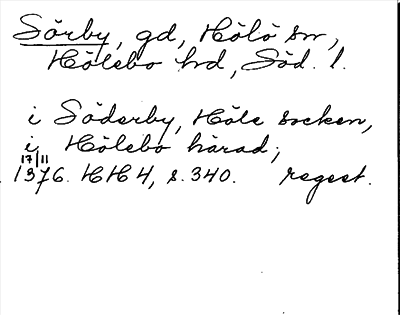 Sörby, gd, Hölö sn,
Hölebo hd, Söd. l.
i Söderby, Höle socken,
i Hölebo härad;
17/11
1376. HH 4, s. 340. regest.